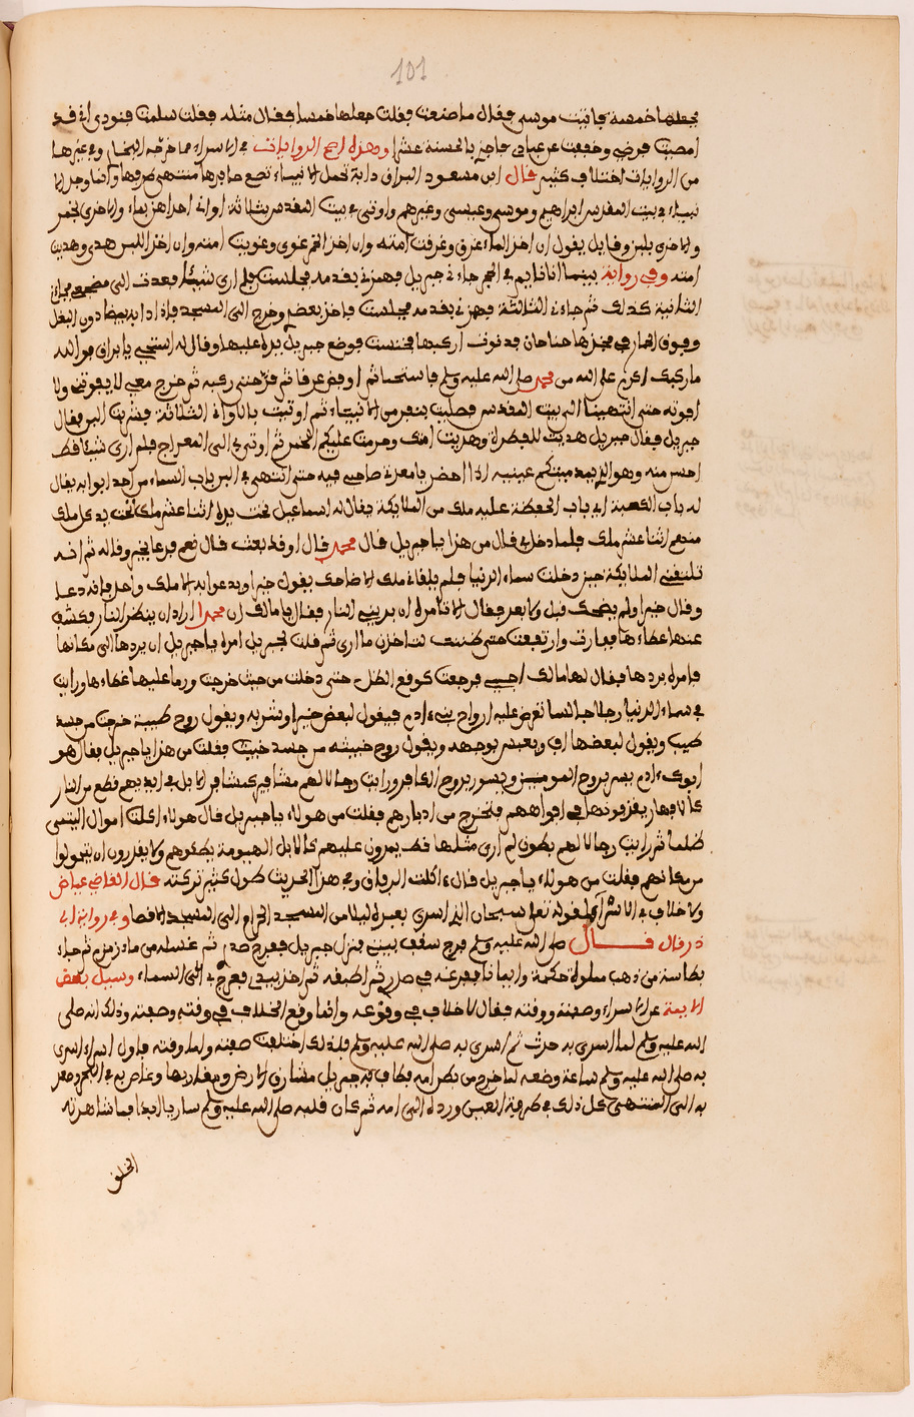 101
بجعلها خمسة فاتيت موسى فقال ما صنعت فقلت جعلها خمسا فقال مثله فقلت سلمت فنودي اني قد
امضيت فرضي وخففت عن عبادي فاجزي بالحسنة عشرا وهذه اصح الروايات في الاسراء مما خرجه البخاري وفي غيرها
من الروايات اختلاف كثير قال ابن مسعود البراق دابة تحمل الانبياء تضع حافرها منتهى طرفها وانما وجد الا
نبياء في بيت المقدس ابراهيم وموسى وعيسى وغيرهم واوتي في بيت المقدس بثلاثة اواني احداهن بماء والاخرى بخمر
والاخرى بلبن وقايل يقول ان اخذ الماء غرق وغرقت امته وان اخذ الخمر غوى وغويت امته وان اخذ اللبن هدي وهديت
امته وفي رواية بينما انا نايم في الحجر جاءني جبريل فهمزني بقدمه فجلست فلم ارى شيئا فعدت الى مضجعي فجاءني
الثانية كذلك ثم جاءني الثالثة فهمزني بقدمه فجلست فاخذ بعضدي وخرج الى المسجد فاذا دابة بيضا دون البغل
وفوق الحمار في فخذها جناحان فدنوت اركبها فخنست فوضع جبريل يده عليها وقال له استحيي يا براق فوالله
ما ركبك اكرم على الله من محمد صلى الله عليه وسلم فاستحيا ثم ارفض عرقا ثم قر حتى ركبه ثم خرج معي لا يفوتني ولا
افوته حتى انتهينا الى بيت المقدس فصليت بنفر من الانبياء ثم اوتيت بالاواني الثلاثة فشربت اللبن فقال
جبريل فقال جبريل هديت للفطرة وهديت امتك وحرمت عليكم الخمر ثم اوتي بي الى المعراج فلم ارى شيئا قط
احسن منه وهو الذي يمد ميتكم عينيه اذا احضر فاصعدني صاحبي فيه حتى انتهى بي الى باب السماء من احد ابوابه يقال
له باب الحفظة اي باب الحفظة عليه ملك من الملايكة يقال له اسماعيل تحت يده اثنا عشر ملك تحت يد كل ملك
منهم اثنا عشر ملك فلما دخل بي قال من هذا يا جبريل قال محمد قال اوقد بعث قال نعم فدعا بخير وقاله ثم انه
تلقتني الملايكة حين دخلت سماء الدنيا فلم يلقاني ملك الا ضاحك يقول خيرا ويدعوا به الا ملك واحد فانه دعا
وقال خيرا ولم يضحك قبل ولا بعد فقال الا تامره ان يريني النار فقال يا مالك ان محمدا اراد ان ينظر النار فكشف
عنها غطاءها ففارت وارتفعت حتى ظننت لتاخذن ما ارى ثم قلت لجبريل امره يا جبريل ان يردها الى مكانها
فامره بردها فقال لها مالك اخبي فرجعت كوقع الظل حتى دخلت من حيث خرجت ورد ما عليها غطاءها ورايت
في سماء الدنيا رجلا جالسا تعرض عليه ارواح بني ءادم فيقول لبعض خيرا ويسر به ويقول روح طيبة خرجت من جسد
طيب ويقول لبعضها اف ويعبس بوجهه ويقول روح خبيثه من جسد خبيث فقلت من هذا يا جبريل فقال هو
ابوك ءادم يسر بروح المومنين ويسور بروح الكافر ورايت رجالا لهم مشافير كمشافر الابل في ايديهم قطع من النار
كالافهار يقذفونها في افواههم فتخرج من ادبارهم فقلت من هولاء يا جبريل قال هولاء اكلت اموال اليتمى
ظلما ثم رايت رجالا لهم بطون لم ارى مثلها قط يمرون عليهم كالابل الهيومة يطئوهم ولا يقدرون ان يتحولوا
من مكانهم فقلت من هولاء يا جبريل قال اكلت الربا وفي هذا الحديث طول كثير تركته قال القاضي عياض
ولا خلاف في الاسراء لقوله تعلى سبحان الذي اسرى بعبده ليلا من المسجد الحرام الى المسجد الاقصا وفي رواية ابي
ذر قال قال صلى الله عليه وسلم فرج سقف بيتي فنزل جبريل ففرج صدري ثم غسله من ماء زمزم ثم جاء
بطاسة من ذهب مملوة حكمة وايمانا فافرغه في صدري ثم اطبقه ثم اخذ بيدي فعرج بي الى السماء وسيل بعض
الايمة عن الاسراء وصفته ووقته فقال لا خلاف في وقوعه وانما وقع الخلاف في وقته وصفته وذلك انه صلى
الله عليه وسلم لما اسري به حرث ثم اسري به صلى الله عليه وسلم فلذلك اختلفت صفته واما وقته فاول اسراء اسري
به صلى الله عليه وسلم ساعة وضعه لما خرج من بطن امه فطاف به جبريل مشارق الارض ومغاربها وغاص به في البحر وصعد
به الى المنتهى كل ذلك في طرفة العين ورده الى امه ثم كان قلبه صلى الله عليه وسلم ساريا ابدا بما شاهدته
الخلق